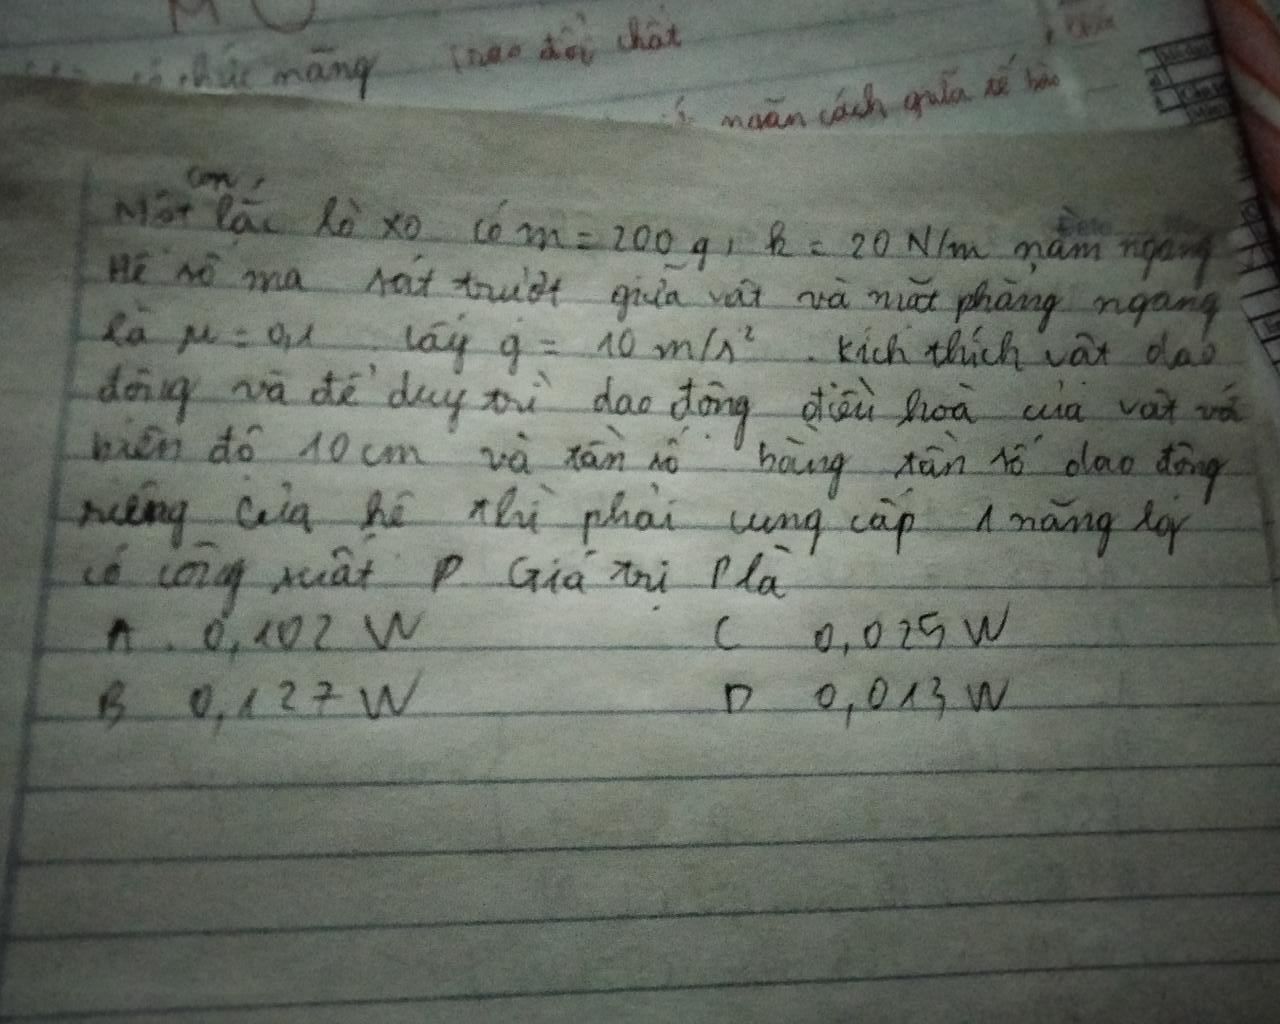 có chức năng trao đổi chất
ngăn cách giữa tế bào
con
Một lắc lò xo có m = 200 g, k = 20 N/m nằm ngang
Hệ số ma sát trượt giữa vật và mặt phẳng ngang
là μ = 0,1 . Lấy g = 10 m/s² . Kích thích vật dao
động và để duy trì dao động điều hoà của vật vớ
biên độ 10 cm và tần số bằng tần số dao động
riêng của hệ thì phải cung cấp 1 năng lg
có công suất P Giá trị P là
A . 0,102 W C 0,025 W
B 0,127 W D 0,013 W